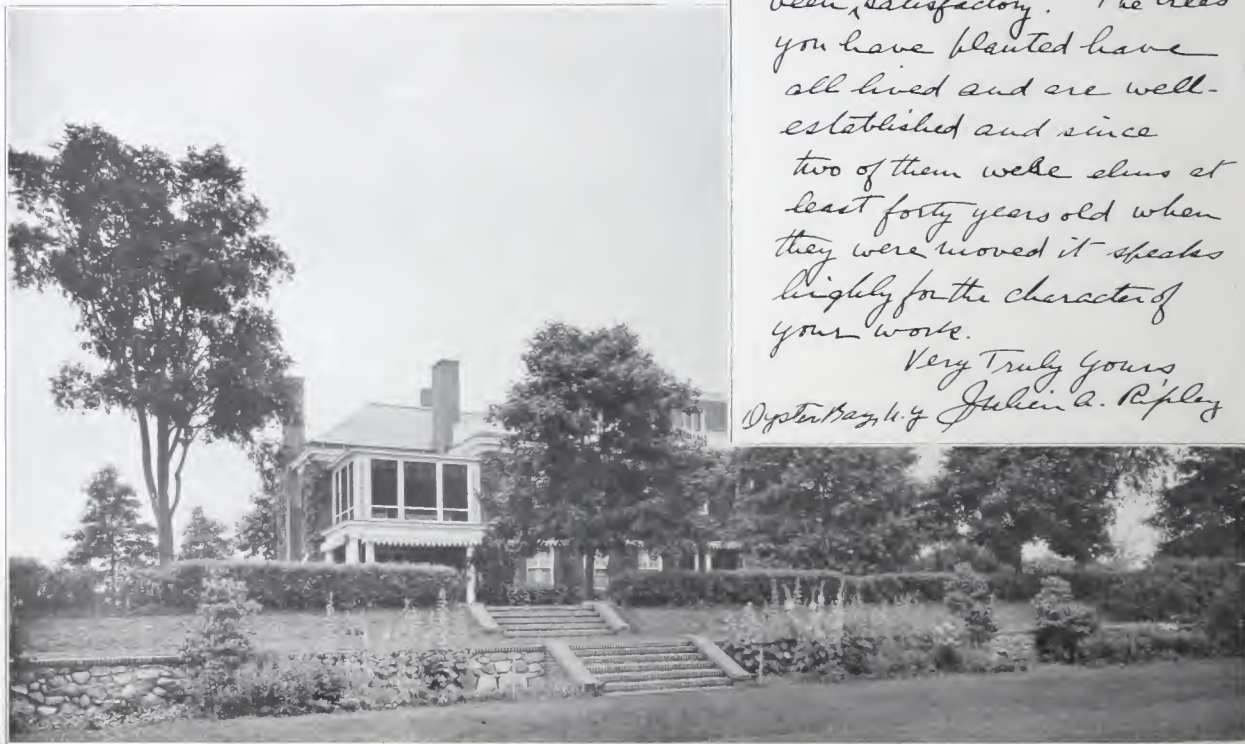 been, satisfactory. The trees
you have planted have
all lived and are well-
established and since
two of them were elms at
least forty years old when
they were moved it speaks
highly for the character of
your work.
Very Truly Yours,
Oyster Bay, N.Y. Julien A. Ripley